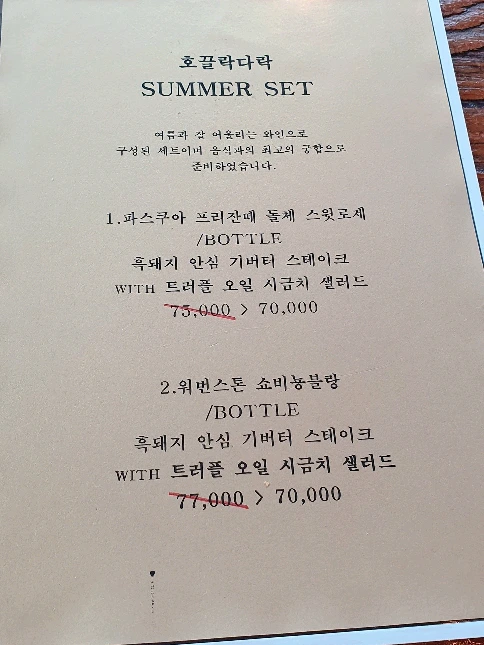 호끌락다락
SUMMER SET
여름과 잘 어울리는 와인으로
구성된 세트이며 음식과의 최고의 궁합으로
준비하였습니다.
1.파스쿠아 프리잔떼 돌체 스윗로제
/BOTTLE
흑돼지 안심 기버터 스테이크
WITH 트러플 오일 시금치 샐러드
75,000 > 70,000
2.워번스톤 쇼비뇽블랑
/BOTTLE
흑돼지 안심 기버터 스테이크
WITH 트러플 오일 시금치 샐러드
77,000 > 70,000